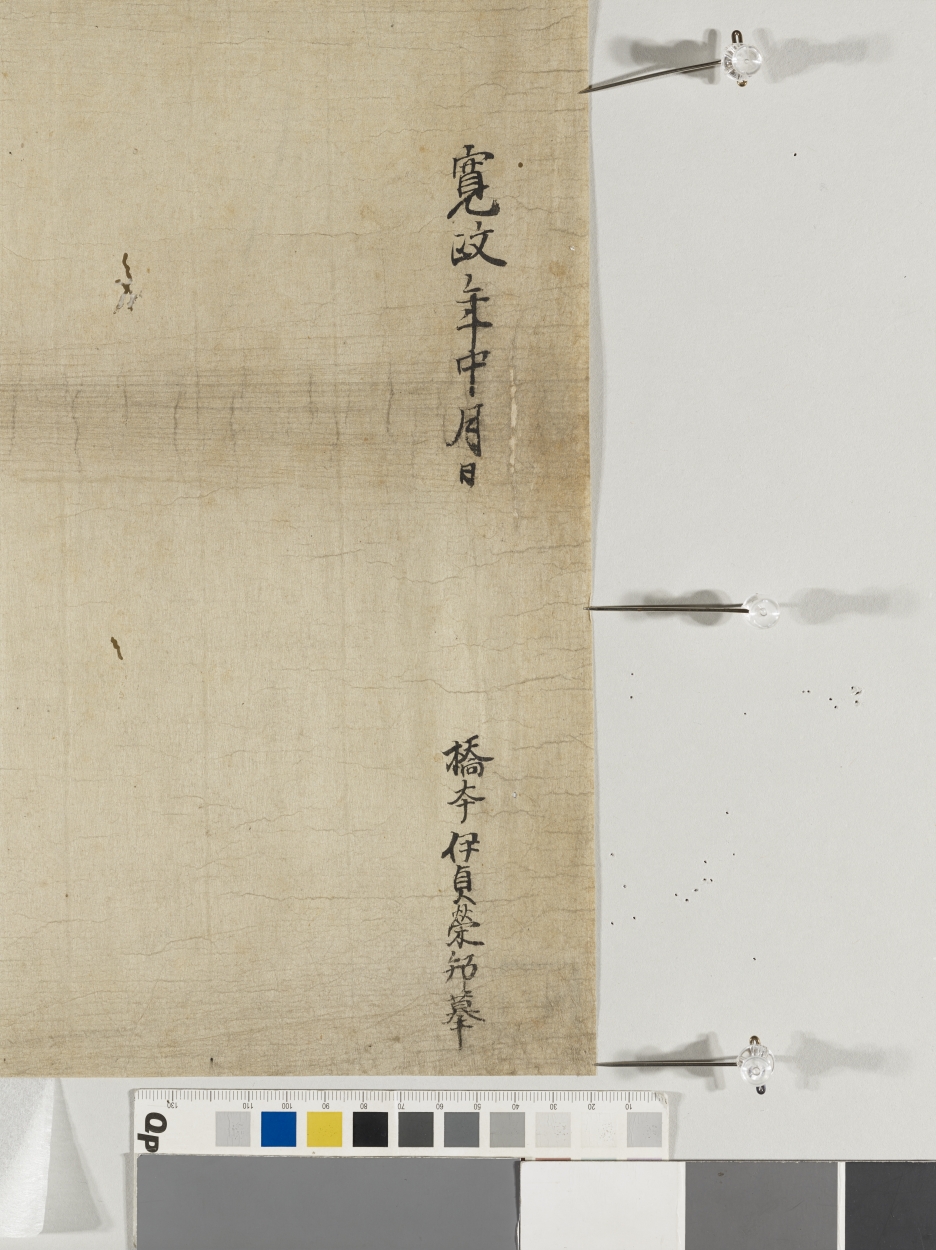 寛政年中月日
橋本伊貞榮邦摹
130 110 100 90 80 70 60 50 40 30 20 10
QP